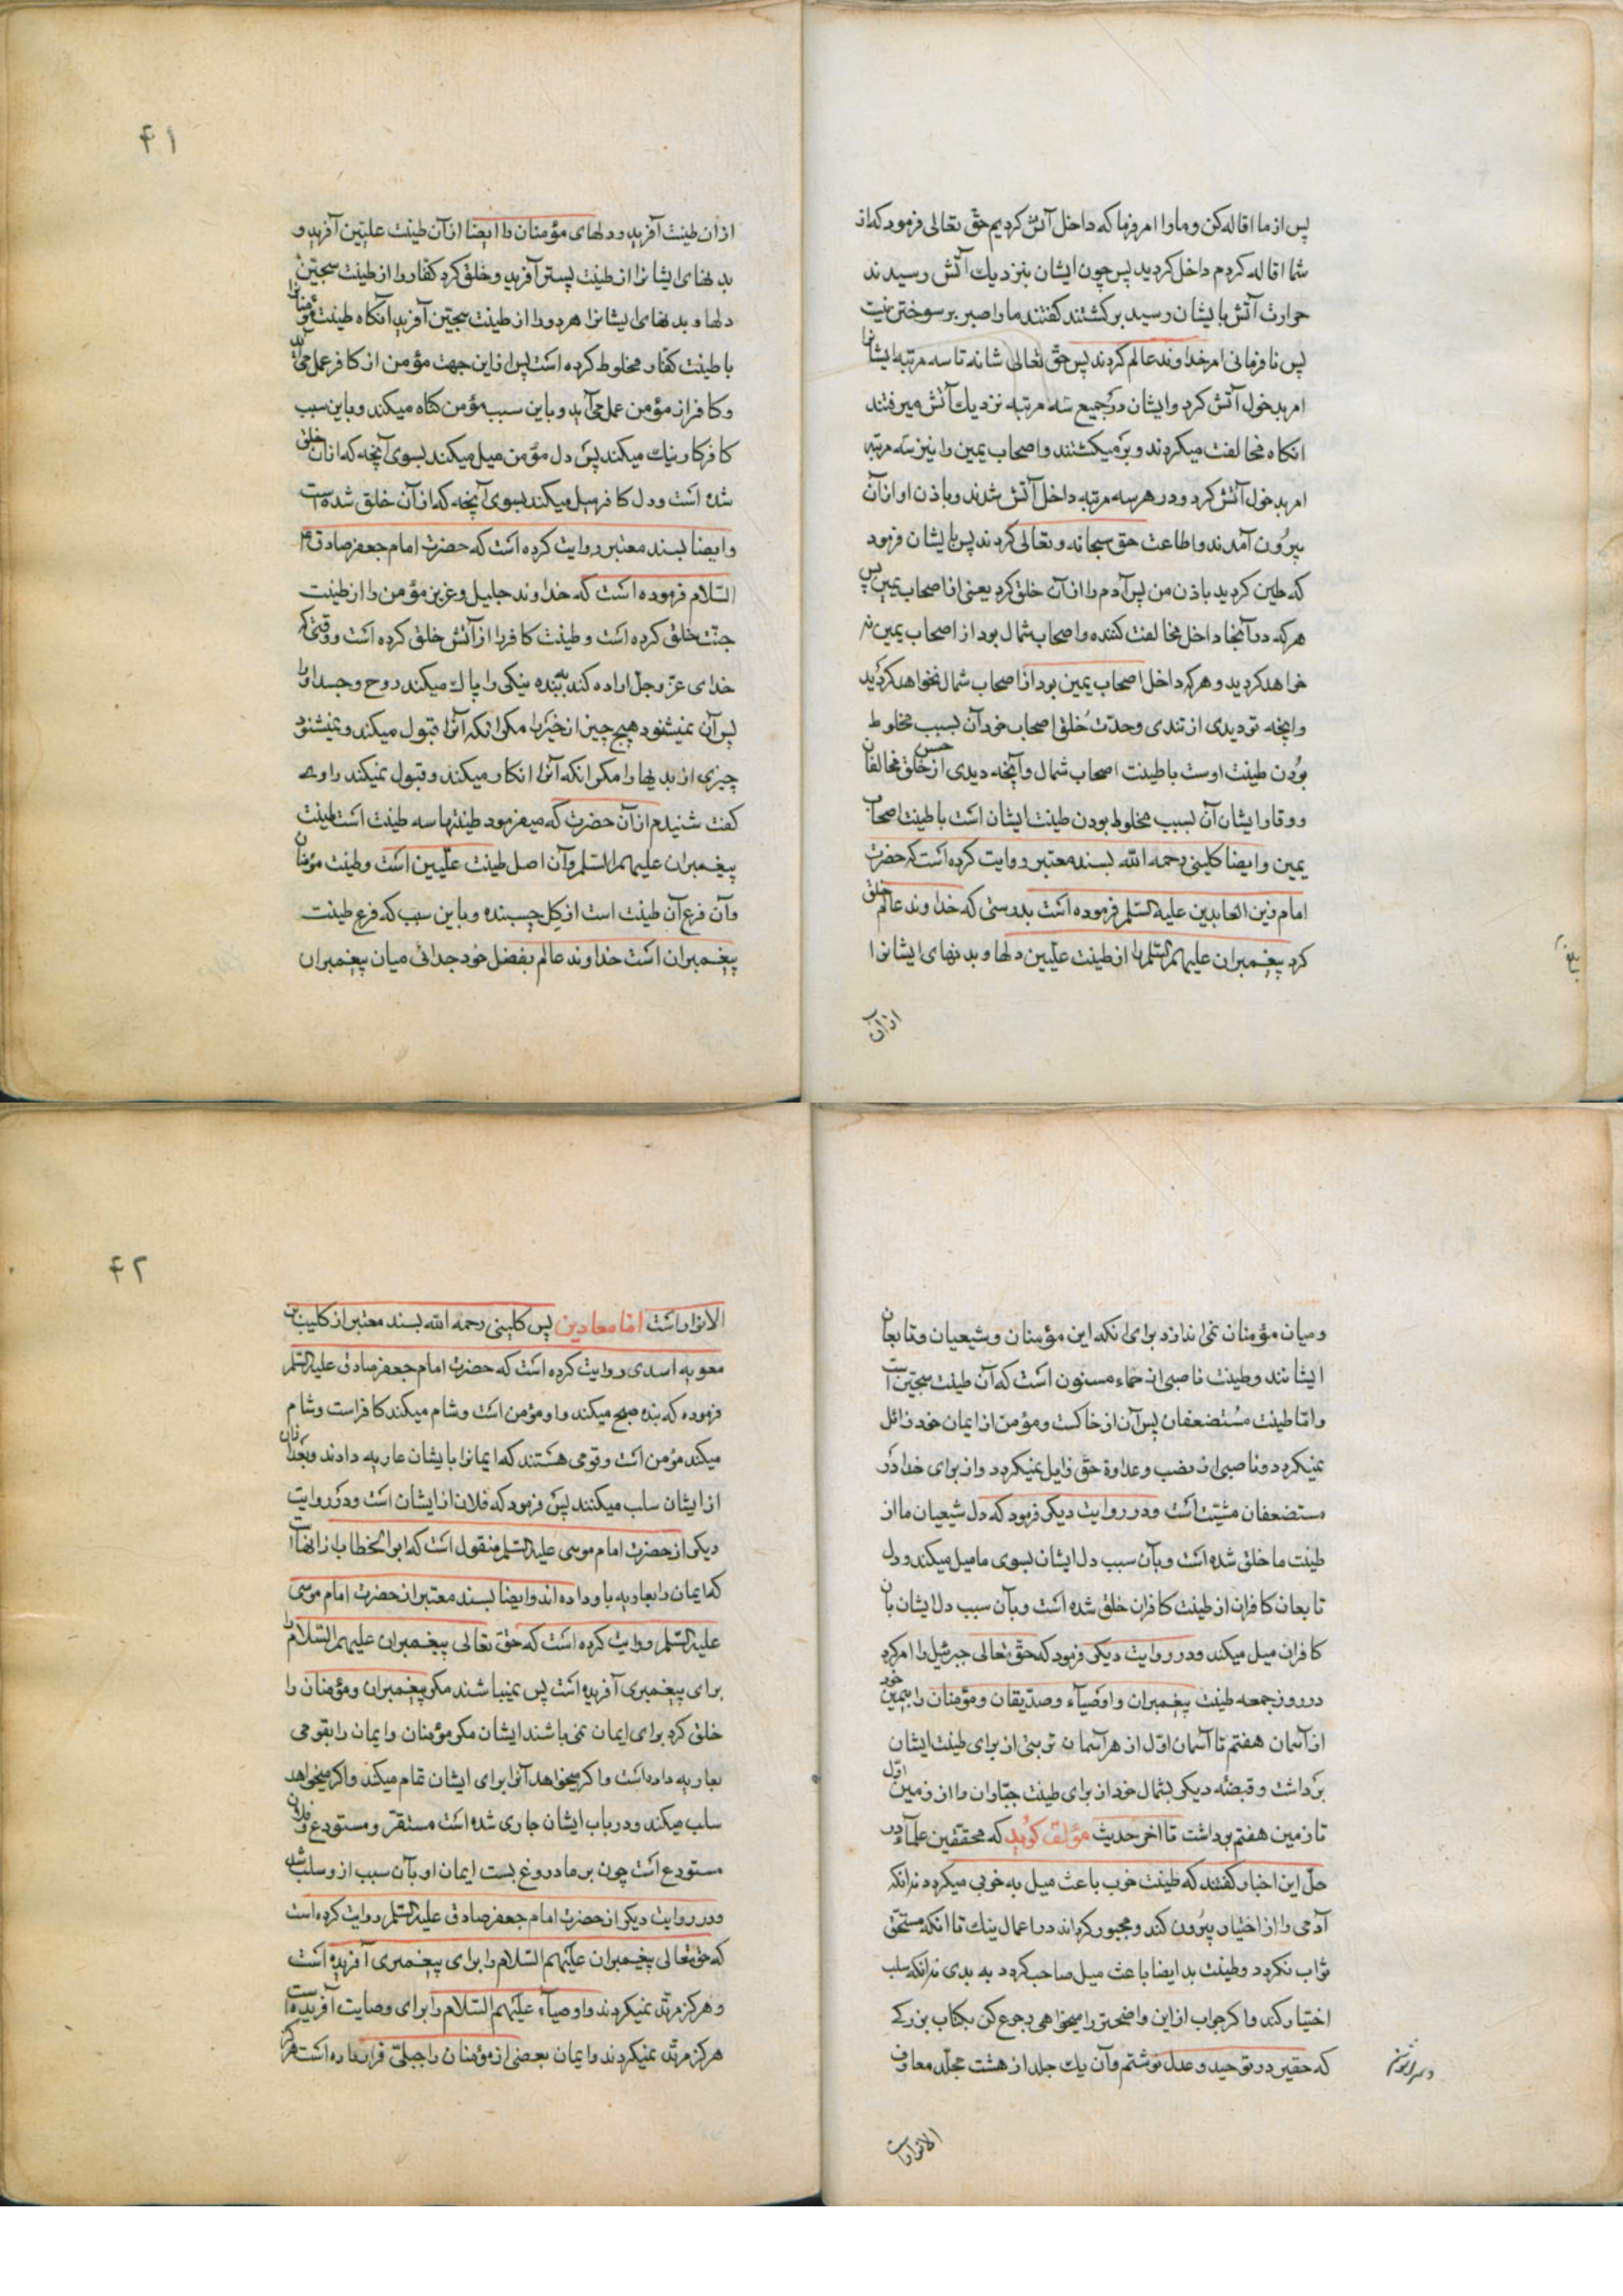 پس از ما اقاله کن و ما را امر فرما که داخل آتش کردیم حق تعالی فرمود که از
شما اقاله کردم داخل کردید پس چون ایشان بنزدیک آتش رسیدند
حرارت آتش بایشان رسید برکشتند کفتند ما را صبر بر سوختن نیست
پس نافرمانی امر خداوند عالم کردند پس حق تعالی شانه تا سه مرتبه ایشانرا
امر بدخول آتش کرد و ایشان در جمیع سه مرتبه نزدیک آتش میرفتند
انکاه مخالفت میکردند و برمیکشتند و اصحاب یمین را نیز سه مرتبه
امر بدخول آتش کرد و در هر سه مرتبه داخل آتش شدند و باذن او از آن
بیرون آمدند و اطاعت حق سبحانه و تعالی کردند پس بایشان فرمود
که طین کردید باذن من پس آدم را از آن خلق کرد یعنی از اصحاب یمین پس
هر که در آنجا داخل مخالفت کننده و اصحاب شمال بود از اصحاب یمین نه
خواهد کردید و هر که داخل اصحاب یمین بود از اصحاب شمال نخواهد کردید
و اینچه تو دیدی از تندی و حدت خلق اصحاب خود آن بسبب مخلوط
بودن طینت اوست با طینت اصحاب شمال و آنچه دیدی از حسن خلق مخالفان
و وقار ایشان آن بسبب مخلوط بودن طینت ایشان است با طینت اصحاب
یمین و ایضا کلینی رحمه الله بسند معتبر روایت کرده است که حضرت
امام زین العابدین علیه السلم فرموده است بدرستی که خداوند عالم خلق
کرد پیغمبران علیهم السلم را از طینت علیین دلها و بدنهای ایشانرا
از آن
۴۱
از آن طینت آفرید و دلهای مؤمنان را ایضا از آن طینت علیین آفرید و
بدنهای ایشانرا از طینت پستر آفرید و خلق کرد کفار را از طینت سجین
دلها و بدنهای ایشانرا هر دو را از طینت سجین آفرید آنکاه طینت مؤمنانرا
با طینت کفار مخلوط کرده است پس از این جهت مؤمن از کافر عمل می آید
و کافر از مؤمن عمل می آید و باین سبب مؤمن کناه میکند و باین سبب
کافر کار نیک میکند پس دل مؤمن میل میکند بسوی آنچه که از آن خلق
شده است و دل کافر میل میکند بسوی آنچه که از آن خلق شده است
و ایضا بسند معتبر روایت کرده است که حضرت امام جعفر صادق
السلام فرموده است که خداوند جلیل و عزیز مؤمن را از طینت
جنت خلق کرده است و طینت کافر را از آتش خلق کرده است و وقتی که
خدای عز و جل اراده کند ببنده نیکی را پاک میکند روح و جسد او را
پس آن نمیشنود هیچ چیز از خیر را مکر انکه آنرا قبول میکند و نمیشنود
چیزی از بدیها را مکر انکه آنرا انکار میکند و قبول نمیکند راوی
کفت شنیدم از آن حضرت که میفرمود طینتها سه طینت است طینت
پیغمبران علیهم السلم و آن اصل طینت علیین است و طینت مؤمنان
و آن فرع آن طینت است از کل چسبنده و باین سبب که فرع طینت
پیغمبران است خداوند عالم بفضل خود جدائی میان پیغمبران
و میان مؤمنان نمی اندازد برای انکه این مؤمنان و شیعیان و تابعان
ایشانند و طینت ناصبی از حماء مسنون است که آن طینت سجین است
و اما طینت مستضعفان پس آن از خاکست و مؤمن از ایمان خود زائل
نمیکردد و ناصبی از نصب و عداوة حق زایل نمیکردد و از برای خدا در
مستضعفان مشیت است و در روایت دیکر فرمود که دل شیعیان ما از
طینت ما خلق شده است و بآن سبب دل ایشان بسوی ما میل میکند و دل
تابعان کافران از طینت کافران خلق شده است و بآن سبب دل ایشان بآن
کافران میل میکند و در روایت دیکر فرمود که حق تعالی جبرئیل را امر کرد
در روز جمعه طینت پیغمبران و اوصیاء و صدیقان و مؤمنان را بیمین خود
از آسمان هفتم تا آسمان اول از هر آسمان تربتی از برای طینت ایشان
برداشت و قبضه دیکر بشمال خود از برای طینت جباران را از زمین اول
تا زمین هفتم برداشت تا اخر حدیث مؤلف کوید که محققین علماء در
حل این اخبار کفتند که طینت خوب باعث میل به خوبی میکردد نه انکه
آدمی را از اختیار بیرون کند و مجبور کرداند در اعمال نیک تا انکه مستحق
ثواب نکردد و طینت بد ایضا باعث میل صاحب کردد به بدی نه انکه سلب
اختیار کند و اکر جواب از این واضحتر را میخواهی رجوع کن بکتاب بزرکی
که حقیر در توحید و عدل نوشتم و آن یک جلد از هشت مجلد معارف
الانوار است
۴۲
الانوار است اما معادین پس کلینی رحمه الله بسند معتبر از کلیب بن
معویه اسدی روایت کرده است که حضرت امام جعفر صادق علیه السلم
فرموده که بنده صبح میکند و او مؤمن است و شام میکند کافر است و شام
میکند مؤمن است و قومی هستند که ایمانرا بایشان عاریه دادند و بعد از آن
از ایشان سلب میکنند پس فرمود که فلان از ایشان است و در روایت
دیکر از حضرت امام موسی علیه السلم منقول است که ابو الخطاب از آنها است
که ایمان را بعاریه باو داده اند و ایضا بسند معتبر از حضرت امام موسی
علیه السلم روایت کرده است که حق تعالی پیغمبران علیهم السلام را
برای پیغمبری آفریده است پس نمیباشند مکر پیغمبران و مؤمنان را
خلق کرد برای ایمان نمی باشند ایشان مکر مؤمنان و ایمان را بقومی
بعاریه داده است و اکر میخواهد آنرا برای ایشان تمام میکند و اکر میخواهد
سلب میکند و در باب ایشان جاری شده است مستقر و مستودع و فلان
مستودع است چون بر ما دروغ بست ایمان او بآن سبب از او سلب شد
و در روایت دیکر از حضرت امام جعفر صادق علیه السلم روایت کرده است
که حق تعالی پیغمبران علیهم السلام را برای پیغمبری آفریده است
و هرکز مرتد نمیکردند و اوصیاء علیهم السلام را برای وصایت آفریده است
هرکز مرتد نمیکردند و ایمان بعضی از مؤمنان را جبلی قرار داده است هرکز